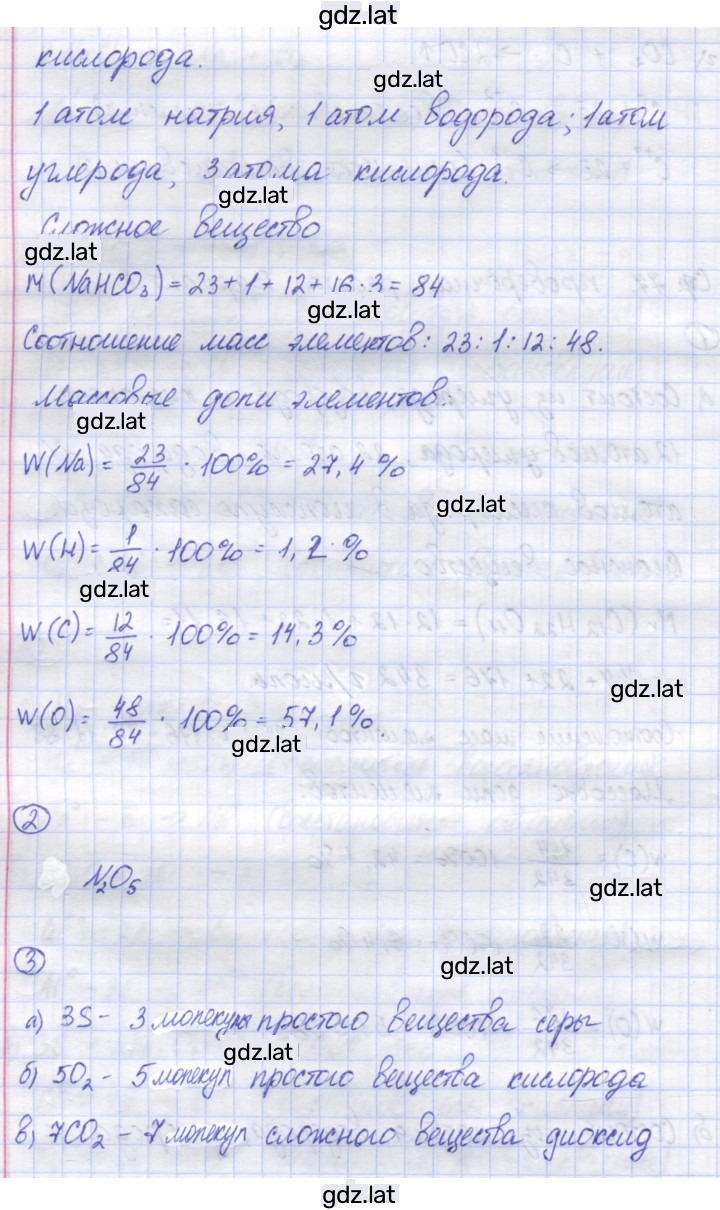 gdz.lat
кислорода.
gdz.lat
1 атом натрия, 1 атом водорода; 1 атом
углерода, 3 атома кислорода.
gdz.lat
Сложное вещество
gdz.lat
M(NaHCO₃) = 23 + 1 + 12 + 16 · 3 = 84
gdz.lat
Соотношение масс элементов: 23 : 1 : 12 : 48.
Массовые доли элементов:
gdz.lat
W(Na) = 23/84 · 100% = 27,4 %
gdz.lat
W(H) = 1/84 · 100% = 1,2 %
gdz.lat
W(C) = 12/84 · 100% = 14,3 %
gdz.lat
W(O) = 48/84 · 100% = 57,1 %
gdz.lat
2
N₂O₅
gdz.lat
3
gdz.lat
а) 3S - 3 молекулы простого вещества серы
gdz.lat
б) 5O₂ - 5 молекул простого вещества кислорода
в) 7CO₂ - 7 молекул сложного вещества диоксид
gdz.lat